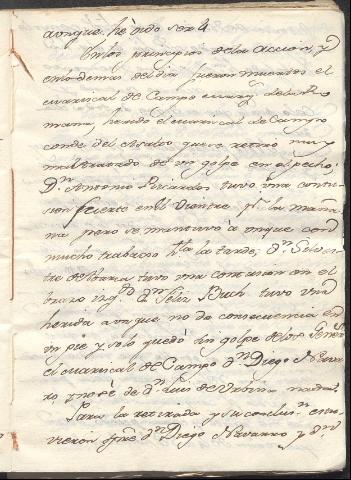 aunque he oido ser 4
En los principios de la accion, y
en lo demas del dia fueron muertos el
mariscal de Campo marq.s de la Ro
mana, herido el mariscal de Campo
conde del Asalto que se retiró muy
maltratado de un golpe en el pecho,
D.n Antonio Ricardos tuvo una contu
sion fuerte en el vientre p.r la maña
na pero se mantuvo à unque con
mucho trabajo h.ta la tarde, d.n Selbes
tre de Abarca tuvo una contusion en el
brazo D.n Felix Buch tuvo una
herida aunque no de consecuencia en
un pie y solo quedó sin golpe de los Gener.s
el mariscal de Campo d.n Diego Navar
ro, y no sé de d.n Luis de Urbina nada.
Para la retirada y su conclus.n estu
vieron spre d.n Diego Navarro y d.n